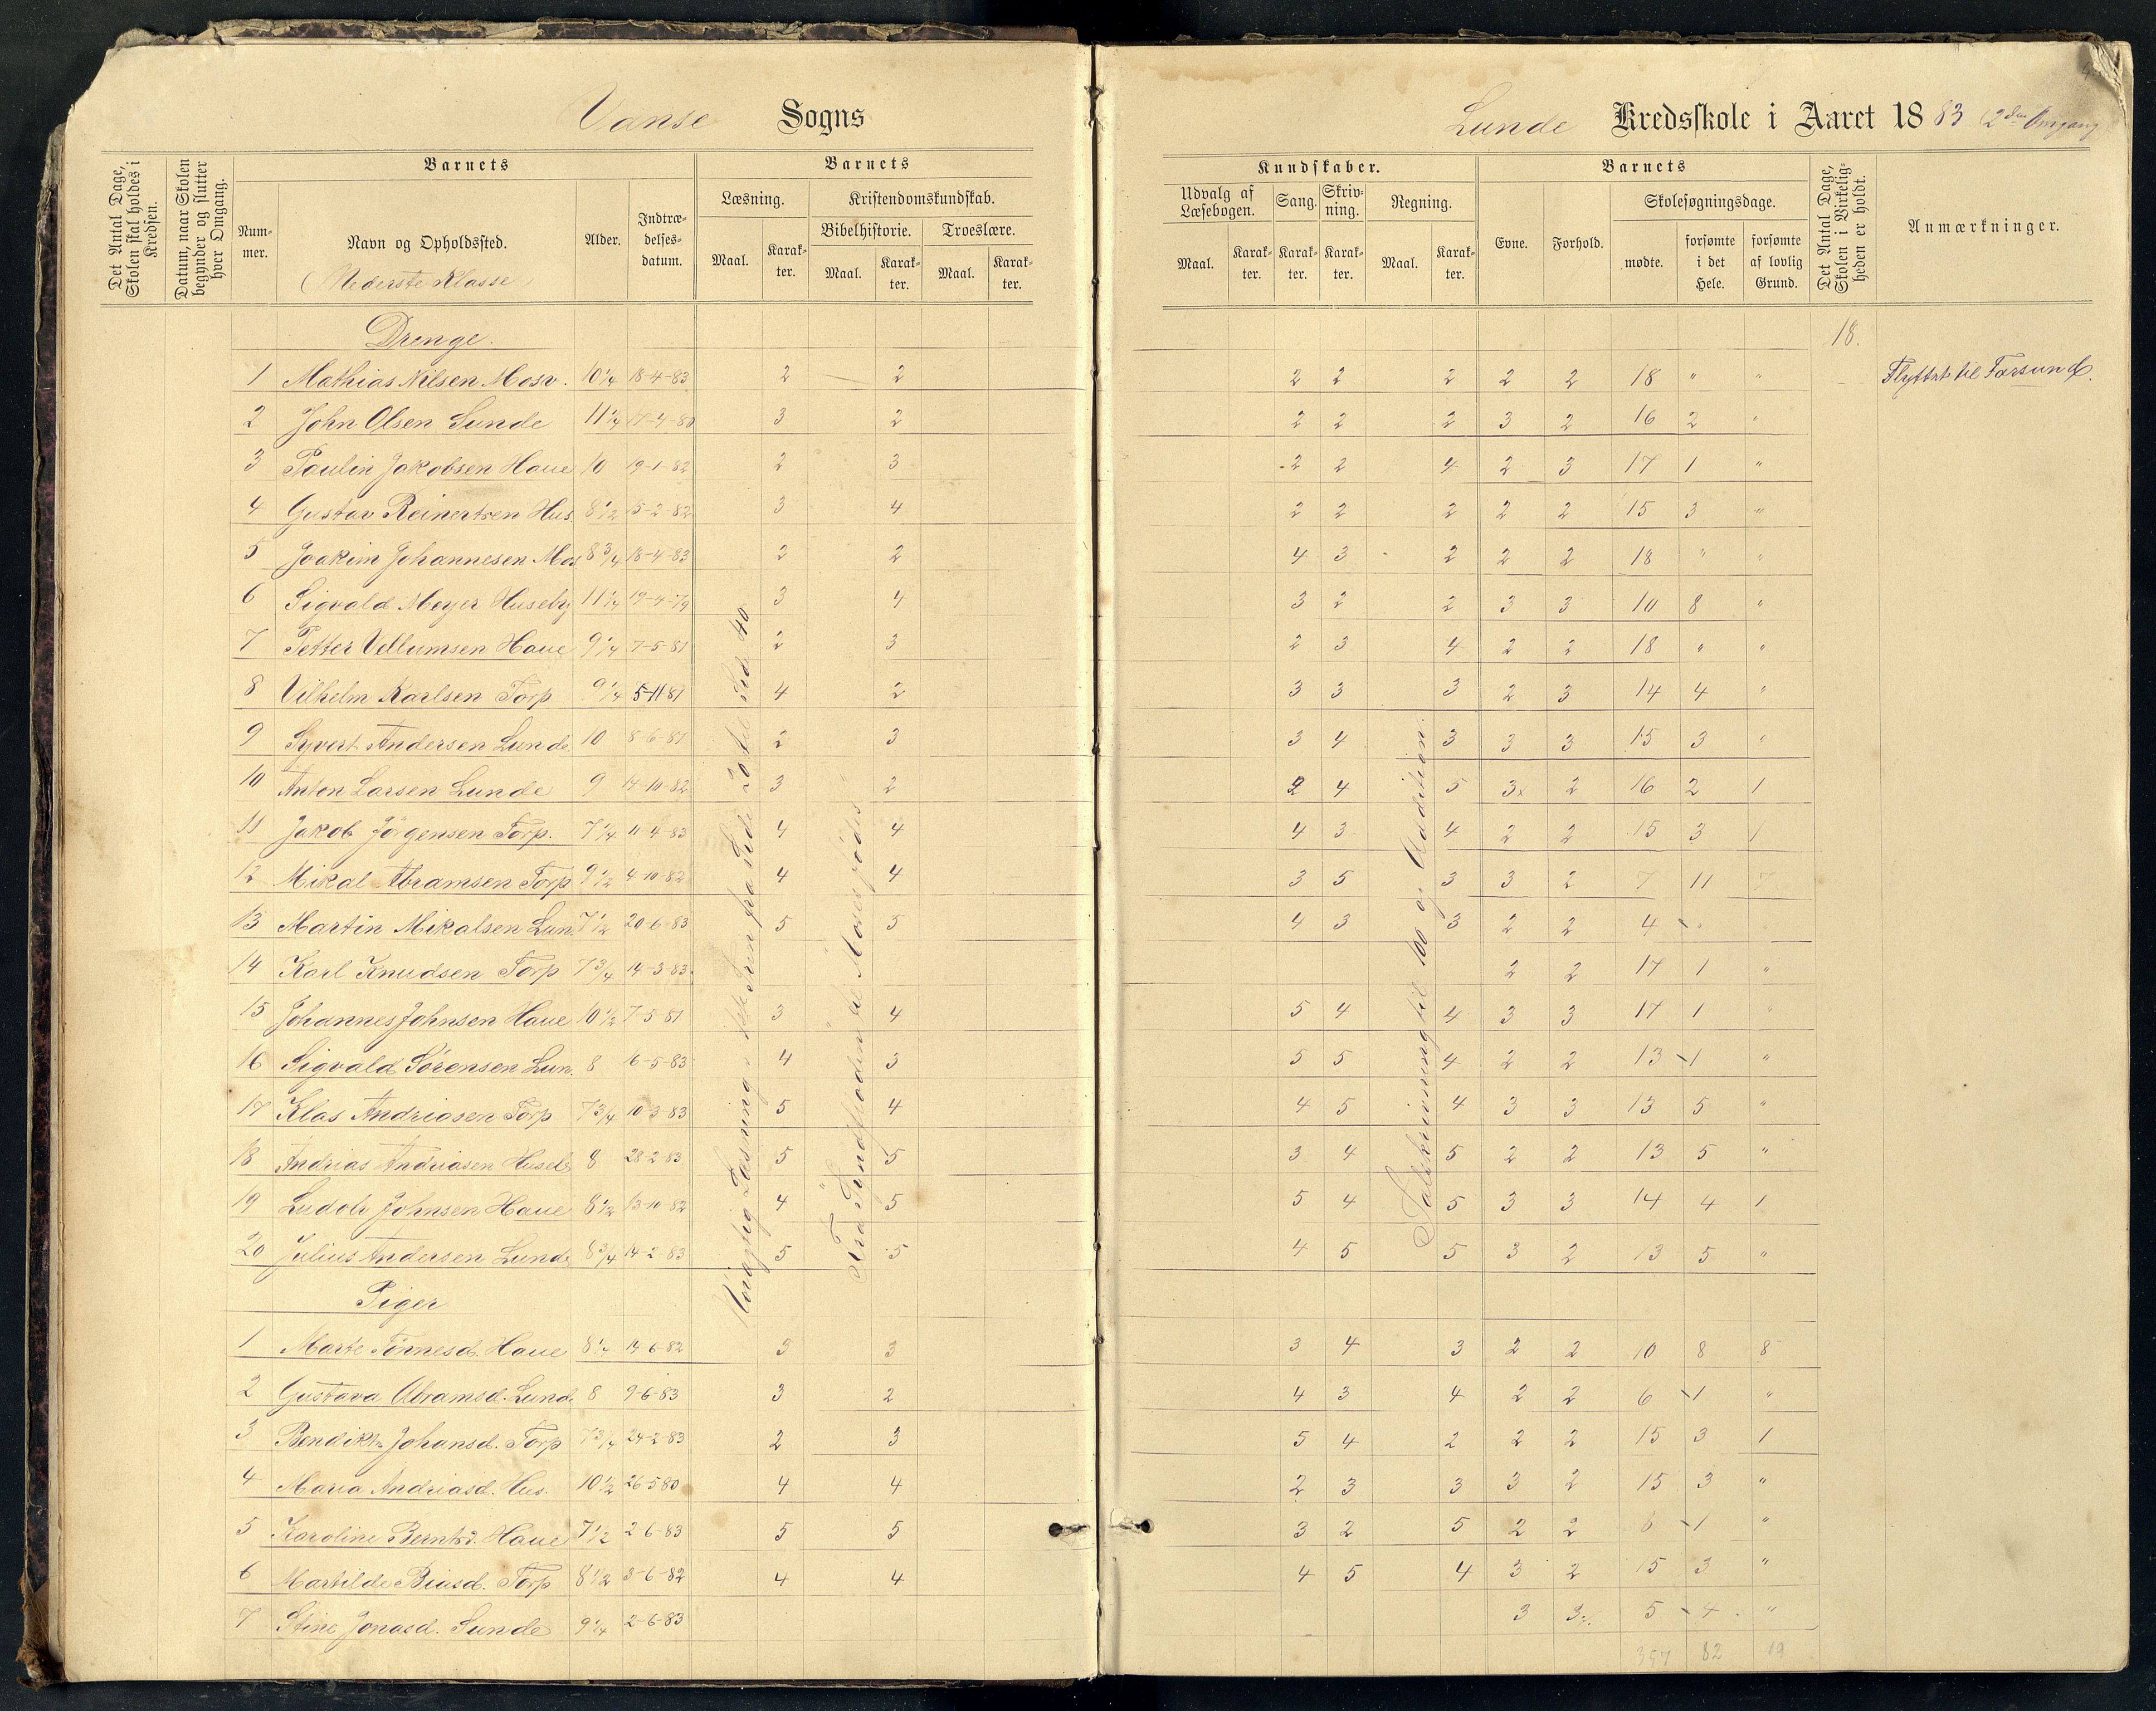 Vanse Sogns
Lunde Kredsskole i Aaret 1883 (2den Omgang
Det Antal Dage, Skolen skal holdes i Kredsen.
Datum, naar Skolen begynder og slutter hver Omgang.
Barnets
Nummer.
Navn og Opholdssted.
(Nederste Klasse)
Alder.
Indtrædelsesdatum.
Barnets
Læsning.
Maal.
Karakter.
Kristendomskundskab.
Bibelhistorie.
Maal.
Karakter.
Troeslære.
Maal.
Karakter.
Kundskaber.
Udvalg af Læsebogen.
Maal.
Karakter.
Sang.
Karakter.
Skrivning.
Karakter.
Regning.
Maal.
Karakter.
Barnets
Evne.
Forhold.
Skolesøgningsdage.
mødte.
forsømte i det Hele.
forsømte af lovlig Grund.
Det Antal Dage, Skolen i Virkeligheden er holdt.
Anmærkninger.
Drenge.
18.
1 Mathias Nilsen Mosv. 10 1/4 18-4-83 2 2 2 2 2 2 2 18 " " Flyttet til Farsund.
2 John Olsen Lunde 11 1/4 17-4-80 3 2 2 2 2 3 2 16 2 "
3 Paulin Jakobsen Haue 10 19-1-82 2 3 2 2 4 2 3 17 1 "
4 Gustav Reinertsen Hus 8 1/2 15-2-82 3 4 2 2 2 2 2 15 3 "
5 Joakim Johannesen Mos 8 3/4 18-4-83 2 2 4 3 2 2 2 18 " "
6 Sigvald Meyer Huseby 11 1/4 19-4-79 3 4 3 2 2 3 3 10 8 "
7 Petter Vellumsen Haue 9 1/4 7-5-81 2 3 2 3 4 2 2 18 " "
8 Vilhelm Karlsen Torp 9 1/4 5-11 81 4 2 3 3 3 2 3 14 4 "
9 Syvert Andersen Lunde 10 8-6-81 2 3 3 4 3 3 3 15 3 "
10 Anton Larsen Lunde 9 14-10-82 3 2 2 4 5 3 2 16 2 1
11 Jakob Jörgensen Torp. 7 1/4 11-4-83 4 4 4 3 4 2 2 15 3 1
12 Mikal Abramsen Torp 9 1/2 4-10-82 4 4 3 5 3 3 2 7 11
13 Martin Mikalsen Lun. 7 1/2 20-6-83 5 5 4 3 3 2 2 4
14 Karl Knudsen Torp 7 3/4 14-3-83 2 2 17 1 "
15 Johannes Johnsen Haue 10 1/2 7-5-81 3 4 5 4 4 3 3 17 1 "
16 Sigvald Sørensen Lun. 8 16-5-83 4 3 5 5 4 2 2 13 1 "
17 Klas Andriasen Torp 7 3/4 10-3-83 5 4 4 5 4 3 3 13 5 "
18 Andrias Andriasen Huseb 8 28-2-83 5 5 3 4 5 2 2 13 5 "
19 Ludolv Johnsen Haue 8 1/2 13-10-82 4 5 5 4 5 3 3 14 4 1
20 Julius Andersen Lunde 8 3/4 14-2-83 5 5 4 5 5 3 2 13 5 "
Piger
1 Marte Tönnesd. Haue 8 1/4 14-6-82 3 3 3 4 3 2 2 10 8 8
2 Gustava Abramsd. Lund. 8 9-6-83 3 2 4 3 4 2 2 6 1 "
3 Bendikte Johansd. Torp 7 3/4 24-2-83 2 3 5 4 2 2 2 15 3 1
4 Maria Andriasd. Hus. 10 1/2 26-5 80 4 4 2 3 3 3 2 15 3 "
5 Karoline Berntsd. Haue 7 1/2 2-6-83 5 5 3 2 5 2 2 1 "
6 Martilde Biasd. Torp 8 1/2 3-6-82 4 4 4 5 4 3 2 15 3 "
7 Stine Jonasd. Sunde 9 1/4 2-6-83 3 3 5 4 "
82
Læsning fra Side 20 til Sid 40
Fra Syndfloden til Moses födes
Talskrivning til 100 og Addition.